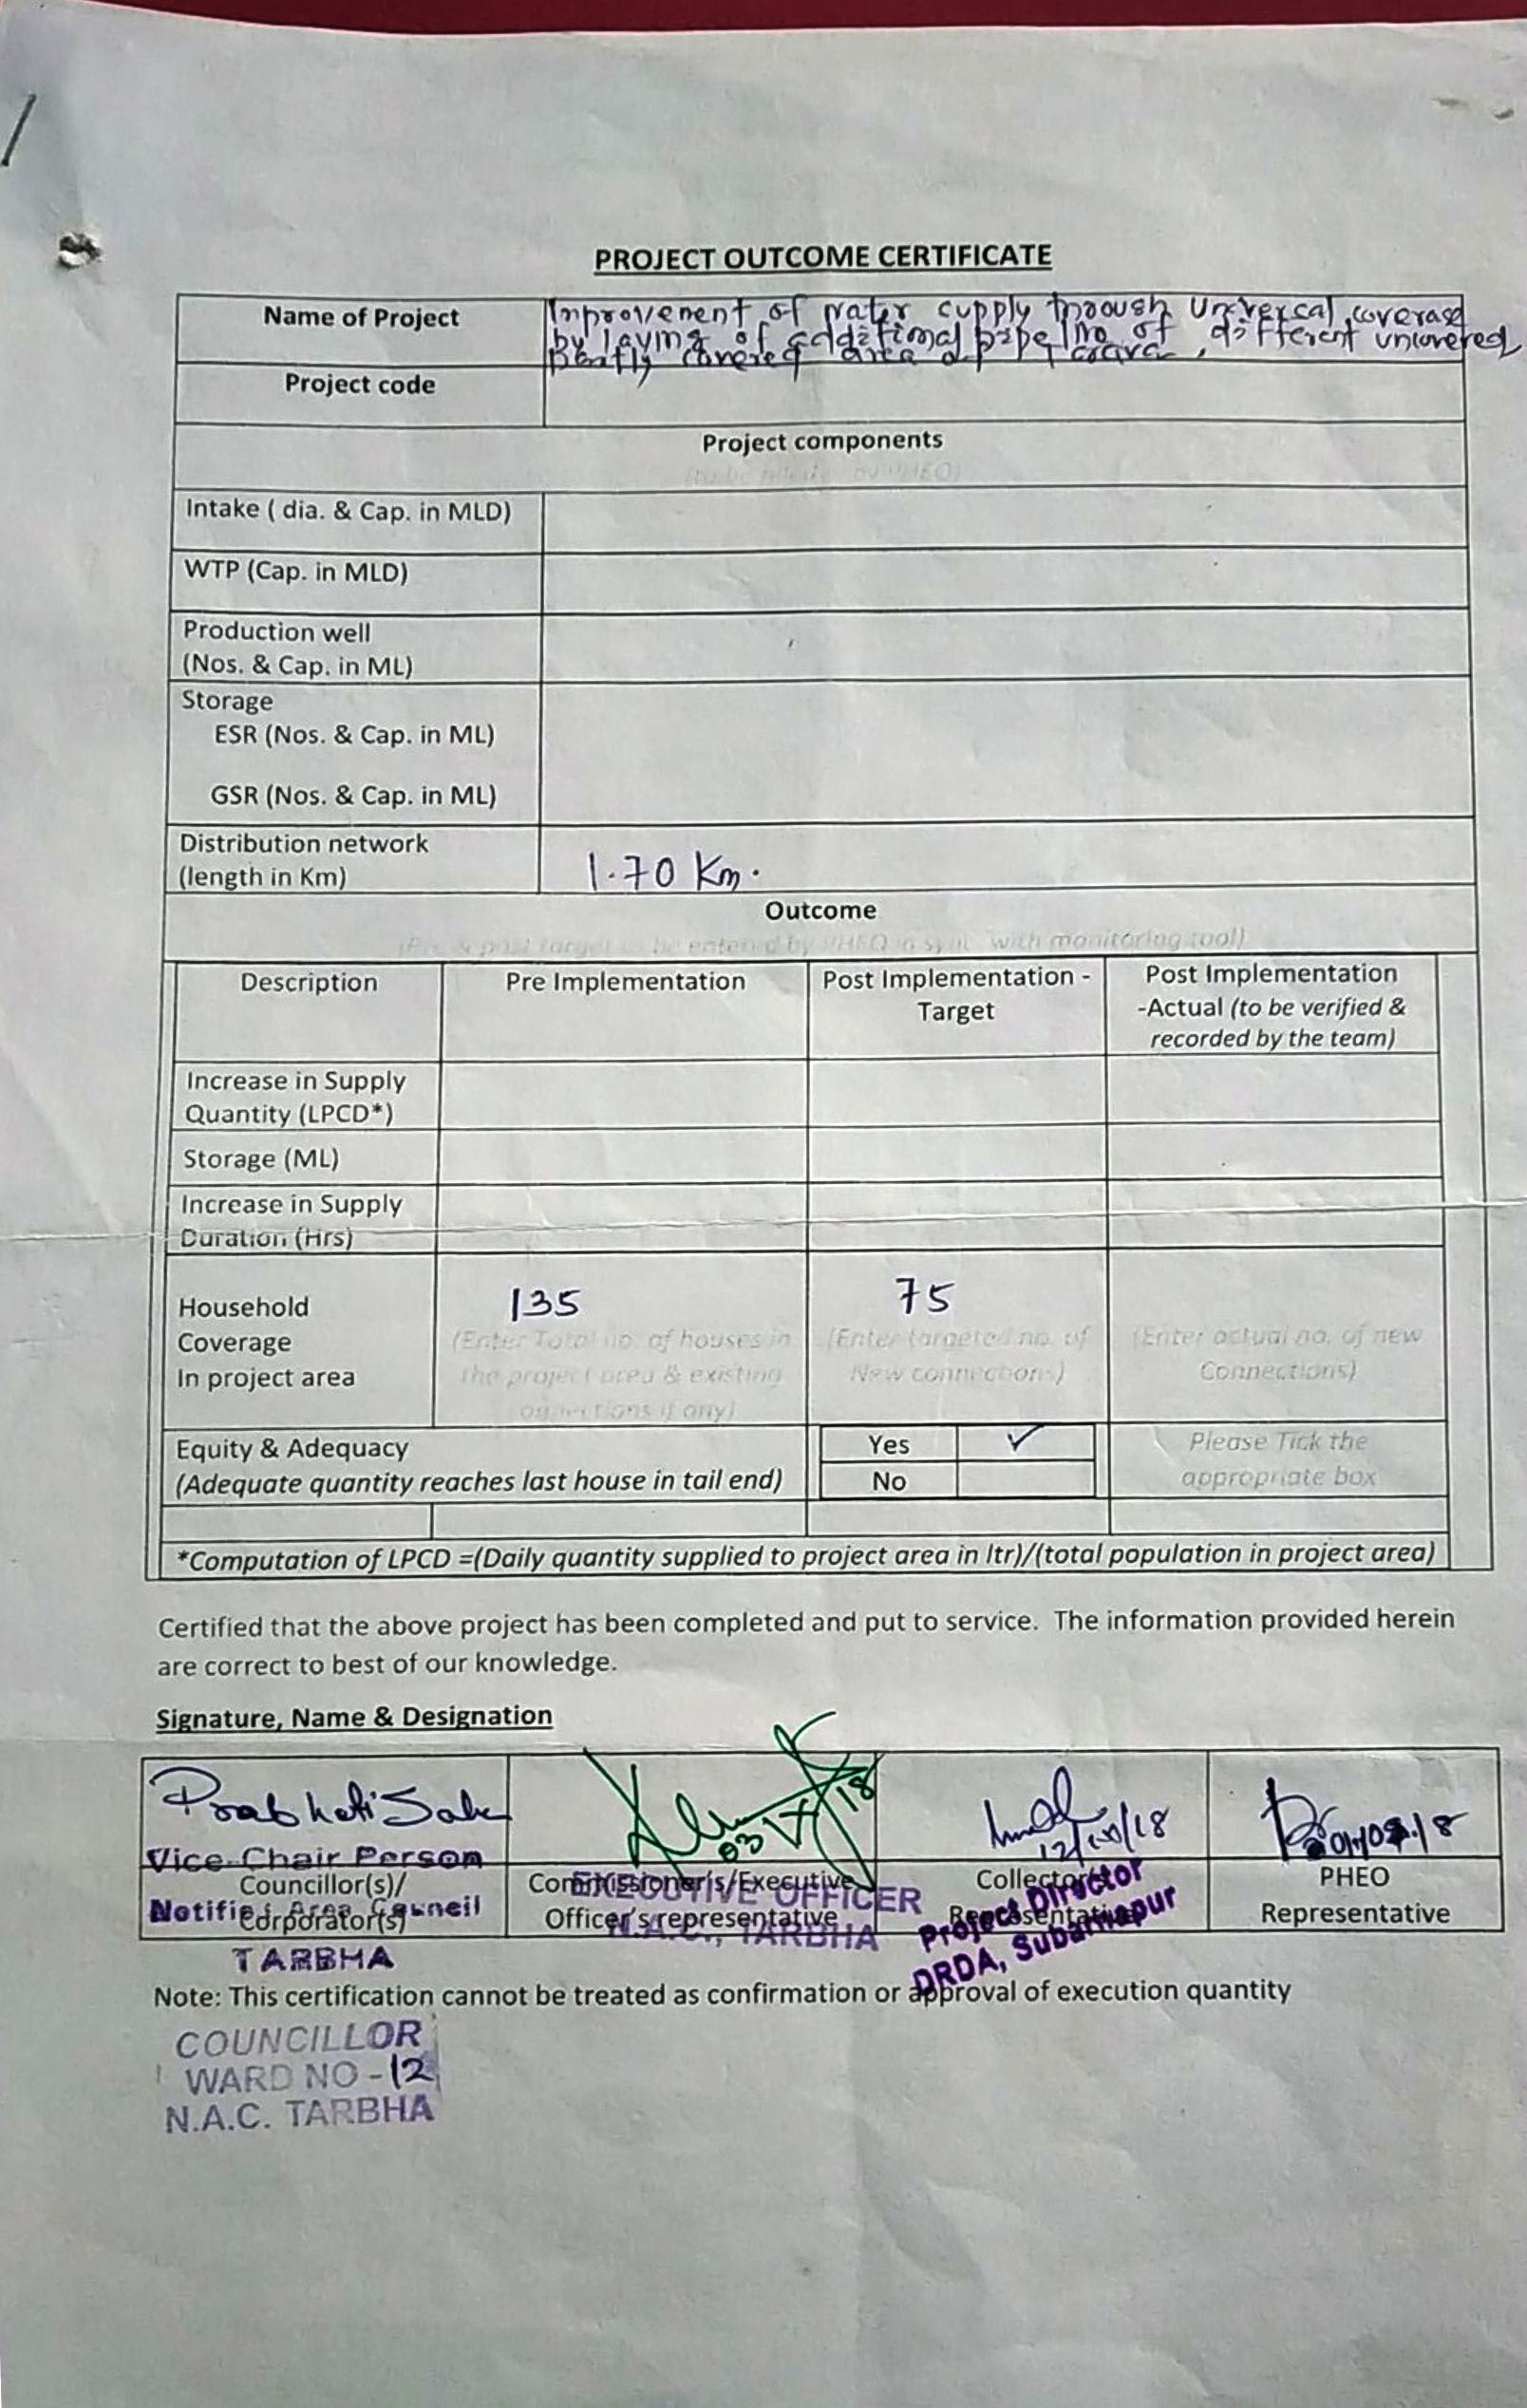 PROJECT OUTCOME CERTIFICATE
Name of Project
Improvement of water supply through Universal coverage
by laying of additional pipeline of different uncovered
partly covered area of
Project code
Project components
(to be filled by PHEO)
Intake ( dia. & Cap. in MLD)
WTP (Cap. in MLD)
Production well
(Nos. & Cap. in ML)
Storage
ESR (Nos. & Cap. in ML)
GSR (Nos. & Cap. in ML)
Distribution network
(length in Km)
1.70 Km.
Outcome
(Pre & post target to be entered by PHEO in sync with monitoring tool)
Description
Pre Implementation
Post Implementation -
Target
Post Implementation
-Actual (to be verified &
recorded by the team)
Increase in Supply
Quantity (LPCD*)
Storage (ML)
Increase in Supply
Duration (Hrs)
Household
Coverage
In project area
135
(Enter Total no. of houses in
the project area & existing
connections if any)
75
(Enter targeted no. of
New connections)
(Enter actual no. of new
Connections)
Equity & Adequacy
(Adequate quantity reaches last house in tail end)
Yes ✓
No
Please Tick the
appropriate box
*Computation of LPCD =(Daily quantity supplied to project area in ltr)/(total population in project area)
Certified that the above project has been completed and put to service. The information provided herein
are correct to best of our knowledge.
Signature, Name & Designation
Prabhati Sahu
Vice Chair Person
Councillor(s)/
Corporator(s)
Notified Area Council
TARBHA
Commissioner's/Executive
Officer's representative
EXECUTIVE OFFICER
N.A.C., TARBHA
12/10/18
Collector's
Representative
Project Director
DRDA, Subarnapur
PHEO
Representative
Note: This certification cannot be treated as confirmation or approval of execution quantity
COUNCILLOR
WARD NO -12
N.A.C. TARBHA